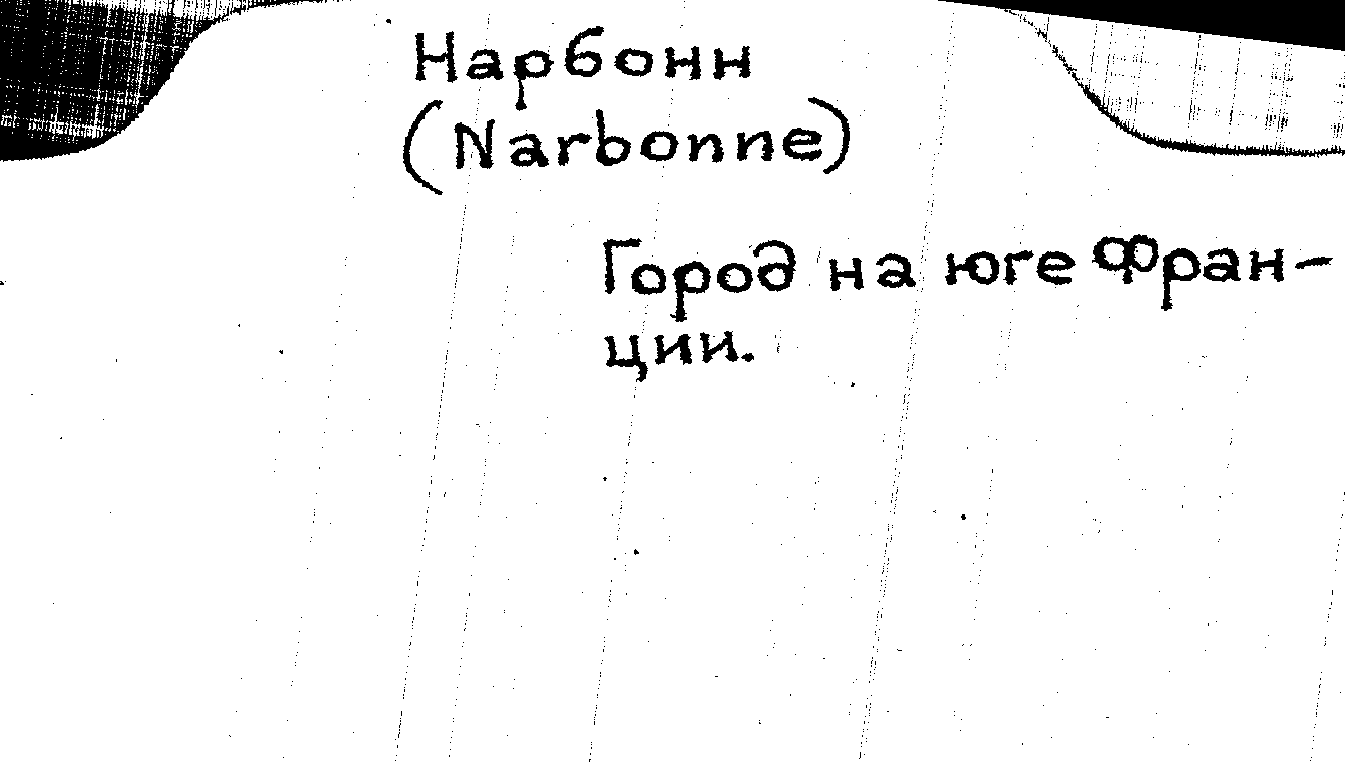 Нарбонн
(Narbonne)
Город на юге Фран-
ции.